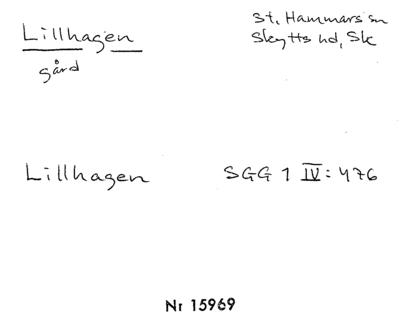 Lillhagen
gård
St. Hammars sn
Skytts hd, Sk
Lillhagen SGG 1 IV: 476
Nr 15969